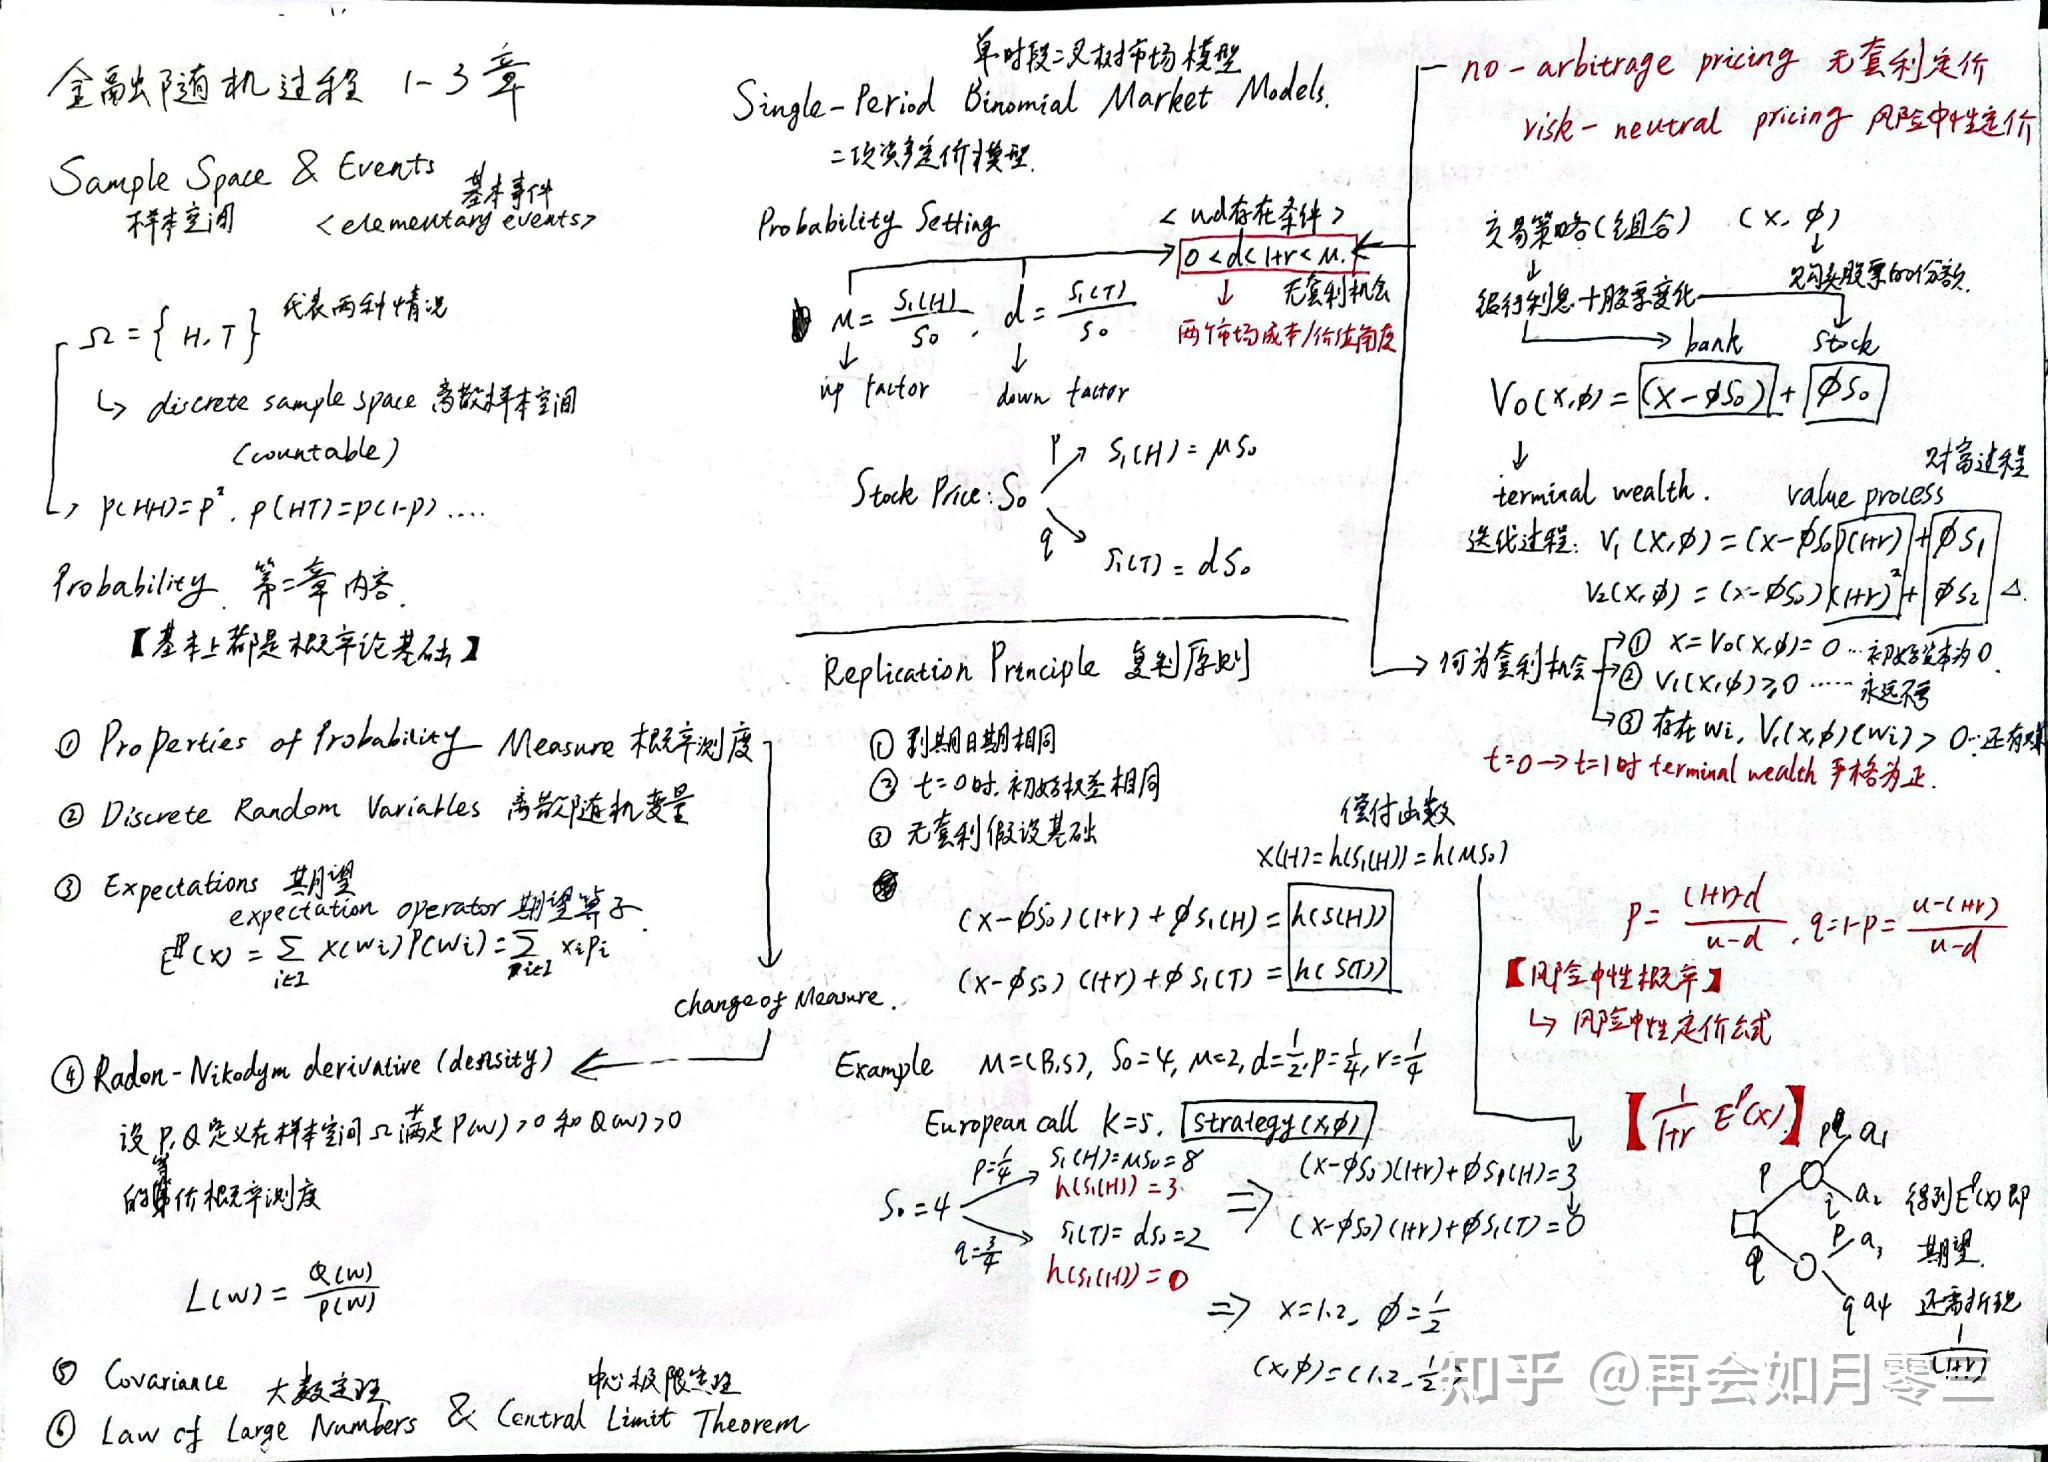 金融随机过程 1-3章
Sample Space & Events
样本空间
基本事件
<elementary events>
Ω = { H, T }
代表两种情况
↳ discrete sample space 离散样本空间
(countable)
P(HH)=P², P(HT)=P(1-P) ....
Probability 第二章内容.
【基本上都是概率论基础】
① Properties of Probability Measure 概率测度
② Discrete Random Variables 离散随机变量
③ Expectations 期望
expectation operator 期望算子
E^P(X) = Σ_{i∈I} X(wi)P(wi) = Σ_{i∈I} xipi
change of Measure.
④ Radon-Nikodym derivative (density)
设 P, Q 定义在样本空间 Ω 上满足 P(w)>0 和 Q(w)>0
的等价概率测度
L(w) = Q(w)/P(w)
⑤ Covariance
大数定理
中心极限定理
⑥ Law of Large Numbers & Central Limit Theorem
单时段二叉树市场模型
Single-Period Binomial Market Models.
二项资产定价模型.
Probability Setting
<u,d存在条件>
0<d<1+r<u.
无套利机会
u = S₁(H)/S₀, d = S₁(T)/S₀
两个市场成本/价值角度
up factor
down factor
P S₁(H) = uS₀
Stock Price: S₀
q S₁(T) = dS₀
Replication Principle 复制原则
① 到期日期相同
② t=0时, 初始权益相同
③ 无套利假设基础
偿付函数
X(H)=h(S₁(H))=h(uS₀)
(x-φS₀)(1+r)+φS₁(H) = h(S(H))
(x-φS₀)(1+r)+φS₁(T) = h(S(T))
Example M=(B,S), S₀=4, u=2, d=1/2, p=1/4, r=1/4
European call K=5, strategy(x,φ)
p=1/4 S₁(H)=uS₀=8
h(S₁(H))=3
S₀=4
q=3/4 S₁(T)=dS₀=2
h(S₁(H))=0
⇒ (x-φS₀)(1+r)+φS₁(H)=3
(x-φS₀)(1+r)+φS₁(T)=0
⇒ x=1.2, φ=1/2
(x,φ)=(1.2, 1/2)
no-arbitrage pricing 无套利定价
risk-neutral pricing 风险中性定价
交易策略(组合) (x, φ)
购买股票的份额.
银行利息+股票变化
bank stock
V₀(x,φ) = (x-φS₀) + φS₀
财富过程
terminal wealth. value process
迭代过程: V₁(x,φ) = (x-φS₀)(1+r)+φS₁
V₂(x,φ) = (x-φS₀)(1+r)²+φS₂ △.
何为套利机会
① x=V₀(x,φ)=0 … 初始资本为0.
② V₁(x,φ)≥0 …… 永远不亏
③ 存在wi, V₁(x,φ)(wi)>0 … 还有赚
t=0→t=1时 terminal wealth 严格为正.
p = ((1+r)-d)/(u-d), q=1-p = (u-(1+r))/(u-d)
【风险中性概率】
↳ 风险中性定价公式
【1/(1+r) E^P(X)】
p a₁
p
q a₂
得到E^P(X)即
p a₃
期望.
q
q a₄
还需折现
1/(1+r)
知乎 @再会如月零三